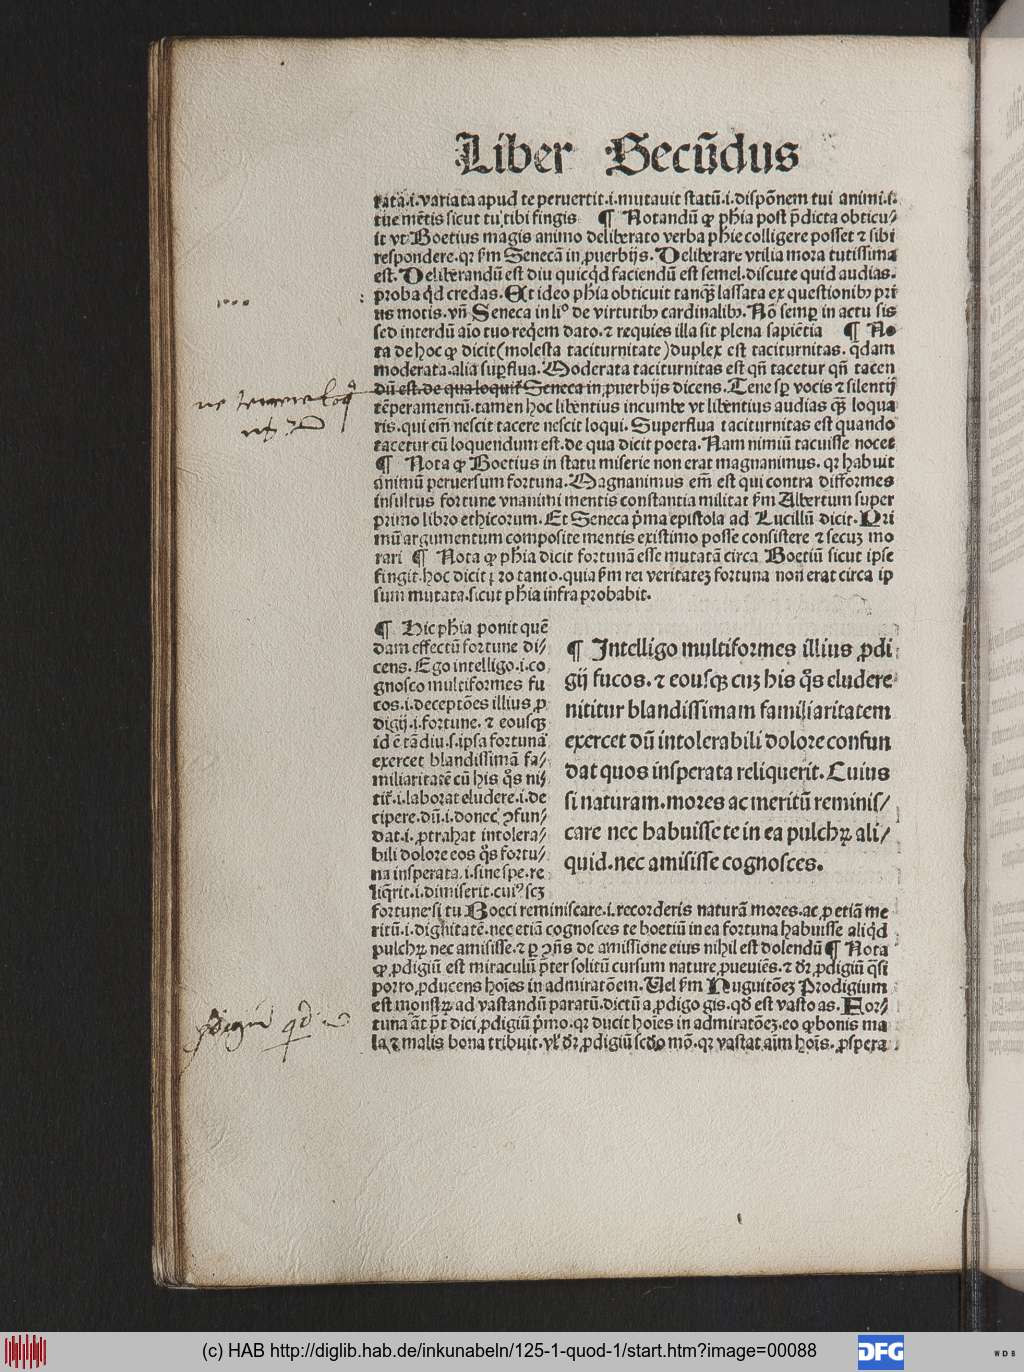 Liber Secūdus
tatā.i.variata apud te peruertit.i.mutauit statū.i.dispōnem tui animi.s.
tue mētis sicut tu tibi fingis ¶ Notandū ꝙ phīa post p̄dicta obticu/
it vt Boetius magis animo deliberato verba phīe colligere posset ⁊ sibi
respondere.qꝛ ẜm Senecā in ꝓuerbijs. Deliberare vtilia mora tutissima
est. Deliberandū est diu quicq̇d faciendū est semel.discute quid audias.
proba q̇d credas. Et ideo phīa obticuit tanqꝫ lassata ex questionibꝫ pri
us motis. vn̄ Seneca in li° de virtutibꝫ cardinalibꝫ. Nō semꝑ in actu sis
sed interdū aīo tuo reqēm dato.⁊ requies illa sit plena sapiētia ¶ No
ta de hoc ꝙ dicit (molesta taciturnitate) duplex est taciturnitas. q̄dam
moderata.alia suꝑflua. Moderata taciturnitas est qn̄ tacetur qn̄ tacen
dū est.de qua loquit᷑ Seneca in ꝓuerbijs dicens. Tene sꝑ vocis ⁊ silentij
tēperamentū.tamen hoc libentius incumbe vt libentius audias qꝫ loqua
ris.qui em̄ nescit tacere nescit loqui. Superflua taciturnitas est quando
tacetur cū loquendum est.de qua dicit poeta. Nam nimiū tacuisse nocet
¶ Nota ꝙ Boetius in statu miserie non erat magnanimus. qꝛ habuit
animū peruersum fortuna. Magnanimus em̄ est qui contra difformes
insultus fortune vnanimi mentis constantia militat ẜm Albertum super
primo libro ethicorum. Et Seneca p̄ma epistola ad Lucillū dicit. Pri
mū argumentum composite mentis existimo posse consistere ⁊ secuꝫ mo
rari ¶ Nota ꝙ phīa dicit fortunā esse mutatā circa Boetiū sicut ipse
fingit.hoc dicit pro tanto.quia ẜm rei veritateꝫ fortuna non erat circa ip
sum mutata.sicut phīa infra probabit.
¶ Hic phīa ponit quē
dam effectū fortune di/
cens. Ego intelligo.i.co
gnosco multiformes fu
cos.i.deceptōes illius ꝓ
digij.i.fortune. ⁊ eousqꝫ
id ē tādiu.s.ipsa fortuna
exercet blandissimā fa/
miliaritatē cū his q̊s ni
tit᷑.i.laborat eludere.i.de
cipere.dū.i.donec ↄfun/
dat.i.ꝓtrahat intolera/
bili dolore eos q̊s fortu/
na insperata.i.sine spe.re
liq̄rit.i.dimiserit.cui° scꝫ
¶ Intelligo multiformes illius ꝓdi
gij fucos.⁊ eousqꝫ cuꝫ his q̊s eludere
nititur blandissimam familiaritatem
exercet dū intolerabili dolore confun
dat quos insperata reliquerit. Cuius
si naturam.mores ac meritū reminis/
care nec habuisse te in ea pulchꝝ ali/
quid.nec amisisse cognosces.
fortune si tu Boeci reminiscare.i.recorderis naturā mores.ac ꝓ etiā me
ritū.i.dignitatē.nec etiā cognosces te boetiū in ea fortuna habuisse aliq̇d
pulchꝝ nec amisisse.⁊ ꝑ ↄn̄s de amissione eius nihil est dolendū ¶ Nota
ꝙ ꝓdigiū est miraculū p̄ter solitū cursum nature ꝓueniēs.⁊ dꝛ ꝓdigiū q̄si
porro ꝓducens hoīes in admiratōem. Uel ẜm Huguitōeꝫ Prodigium
est monstꝝ ad vastandū paratū.dictū a ꝓdigo gis.qd̄ est vasto as. For/
tuna āt p̄t dici ꝓdigiū p̄mo.qꝛ ducit hoīes in admiratōeꝫ.eo ꝙ bonis ma
la.⁊ malis bona tribuit. vl̓ dꝛ ꝓdigiū scd̄o mō. qꝛ vastat aīm hoīs. ꝓspera
(c) HAB http://diglib.hab.de/inkunabeln/125-1-quod-1/start.htm?image=00088
DFG
WDB